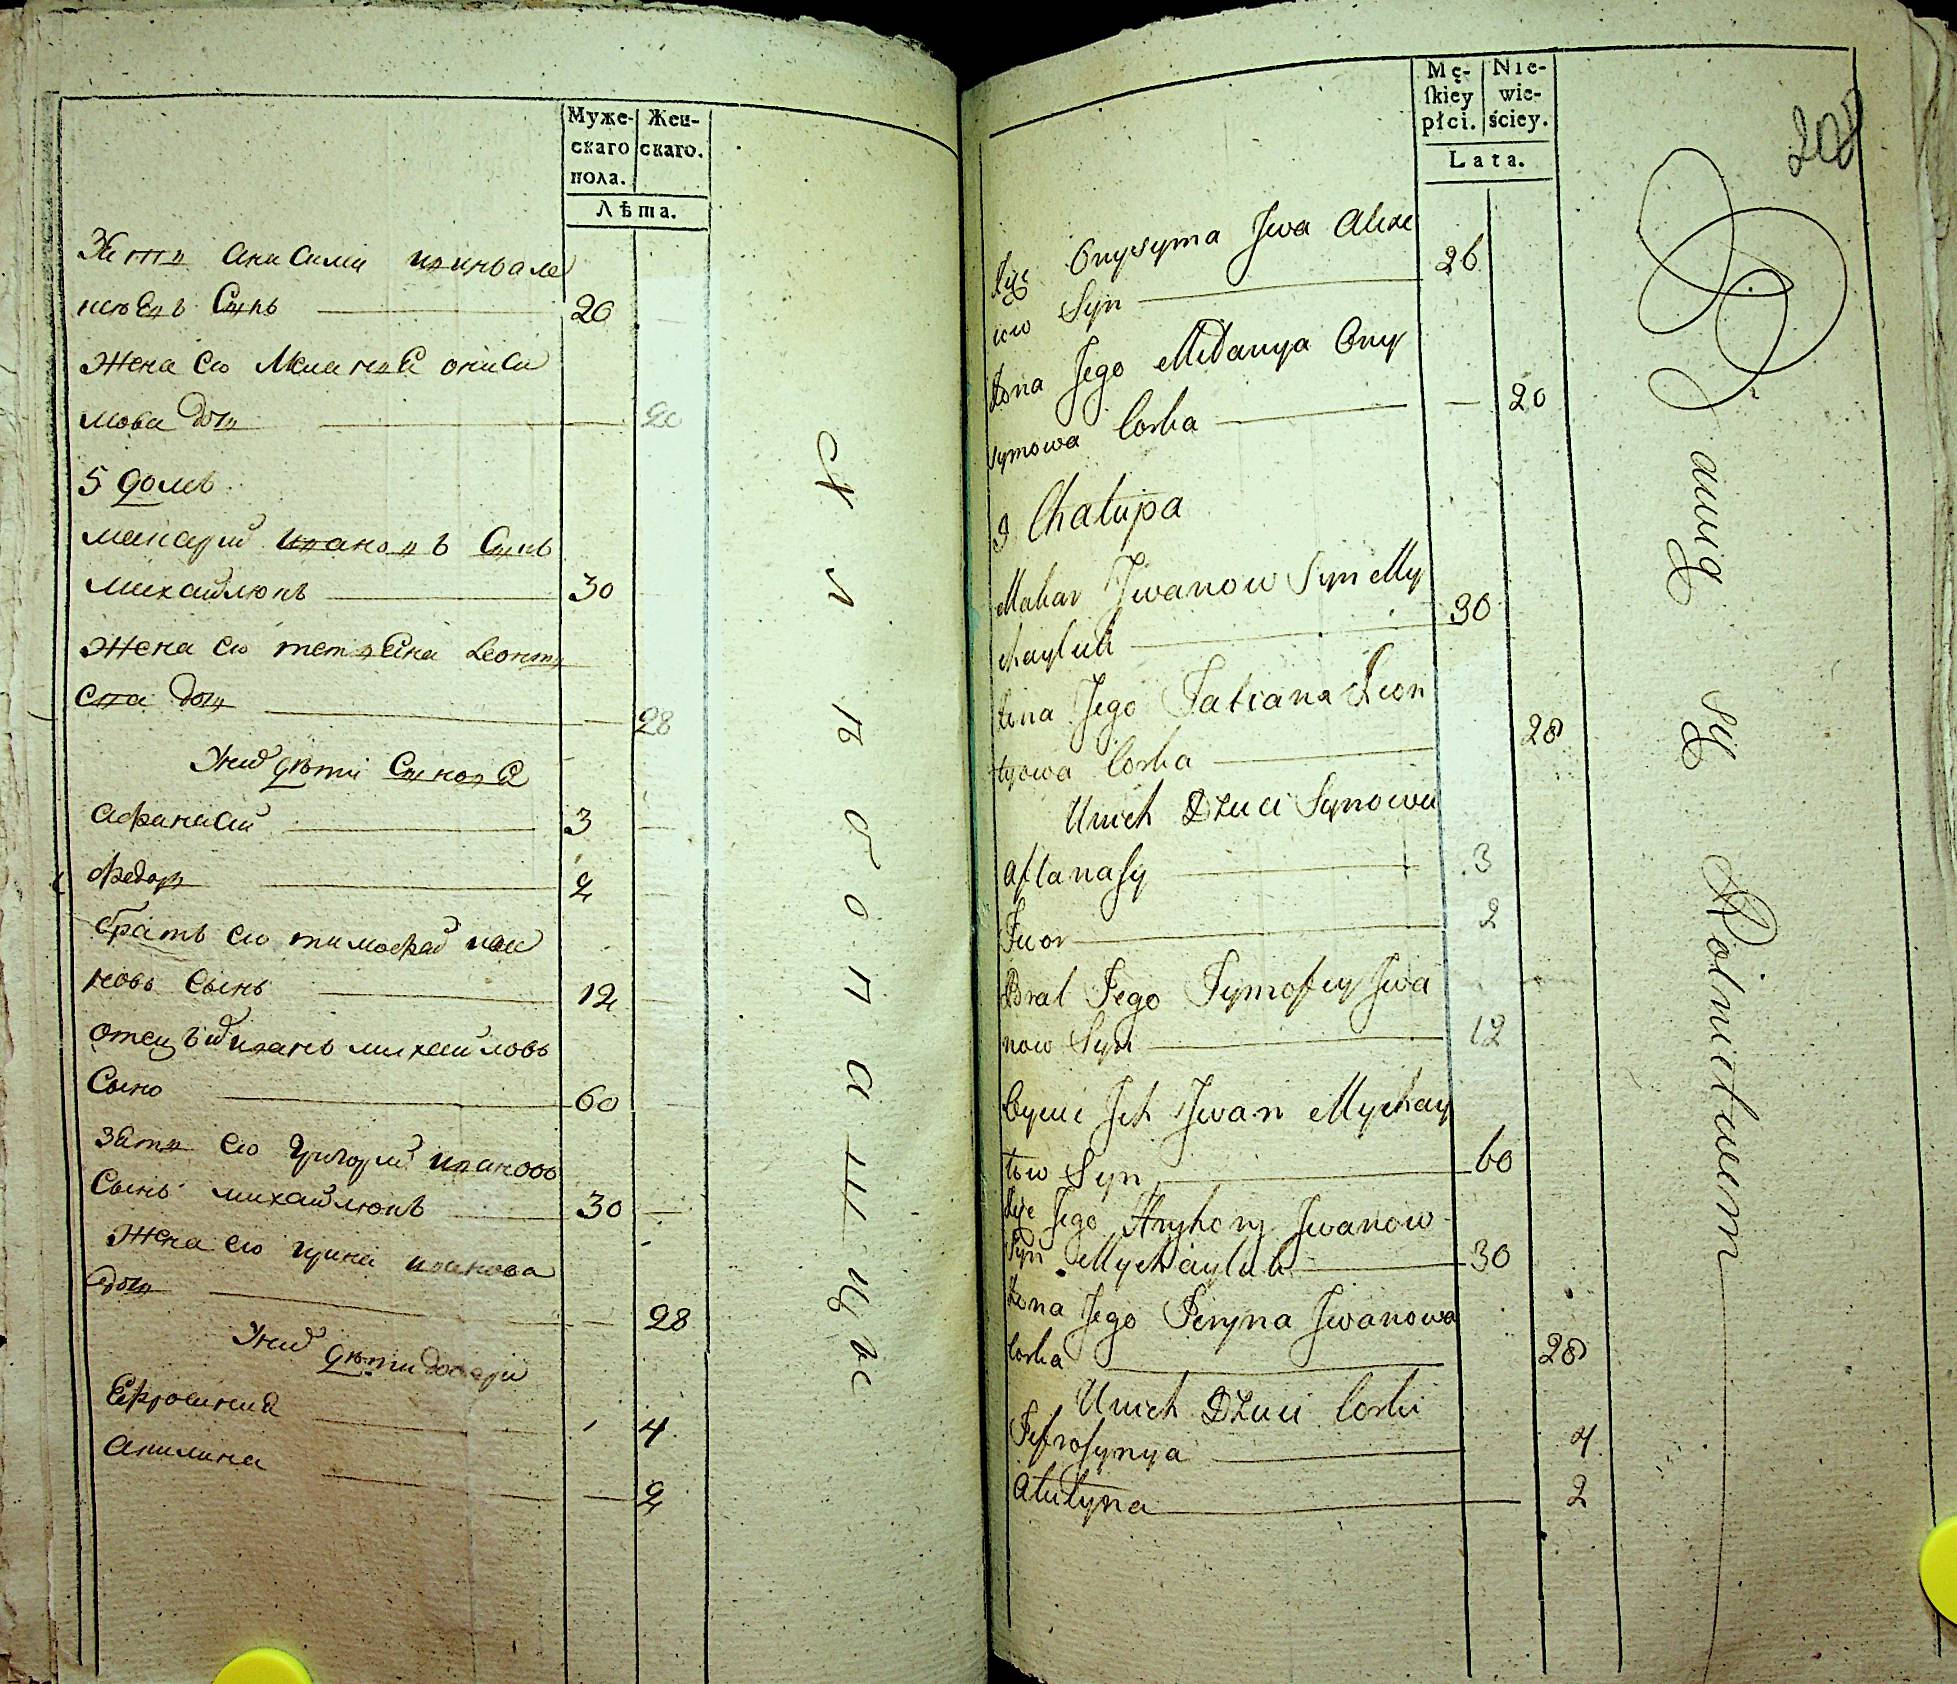 Муже- Жен-
скаго скаго.
пола.
Лѣта.
Зять Анисима иванъ але
ксѣевъ Сынъ 26
жена его Мелания ониси
мова дочь 20
5 домъ
макарий ивановъ Сынъ
михайлюкъ 30
жена его татьяна Леонть
ева дочь 28
Уних дѣти Синовя
Афанасий 3
Федор 2
братъ его тимофей ива
новъ сынъ 12
отецъ их иванъ михайловъ
Сынъ 60
зять его григорий ивановъ
Сынъ михайлюкъ 30
жена его ирина иванова
дочь 28
Уних дѣти дочери
Ефросиния 4
Акилина 2
Mę- Nie-
ſkiey wie-
płci. ściey.
Lata.
208
Zięc Onysyma Jwa Alexe
iow Syn 26
Żona Jego Mełanya Ony
symowa Corka 20
5 Chałupa
Makar Jwanow Syn My
chayluk 30
Żona Jego Tatiana Leon
tyowa Corka 28
Unich Dzieci Synowie
Aftanasy 3
Fiedor 2
Brat Jego Tymofiey Jwa
now Syn 12
Oyciec Jch Jwan Mychay
łow Syn 60
Zięc Jego Hryhory Jwanow
Syn Mychayluk 30
Żona Jego Jeryna Jwanowa
Corka 28
Unich Dzieci Corki
Jefrosynya 4
Akulyna 2